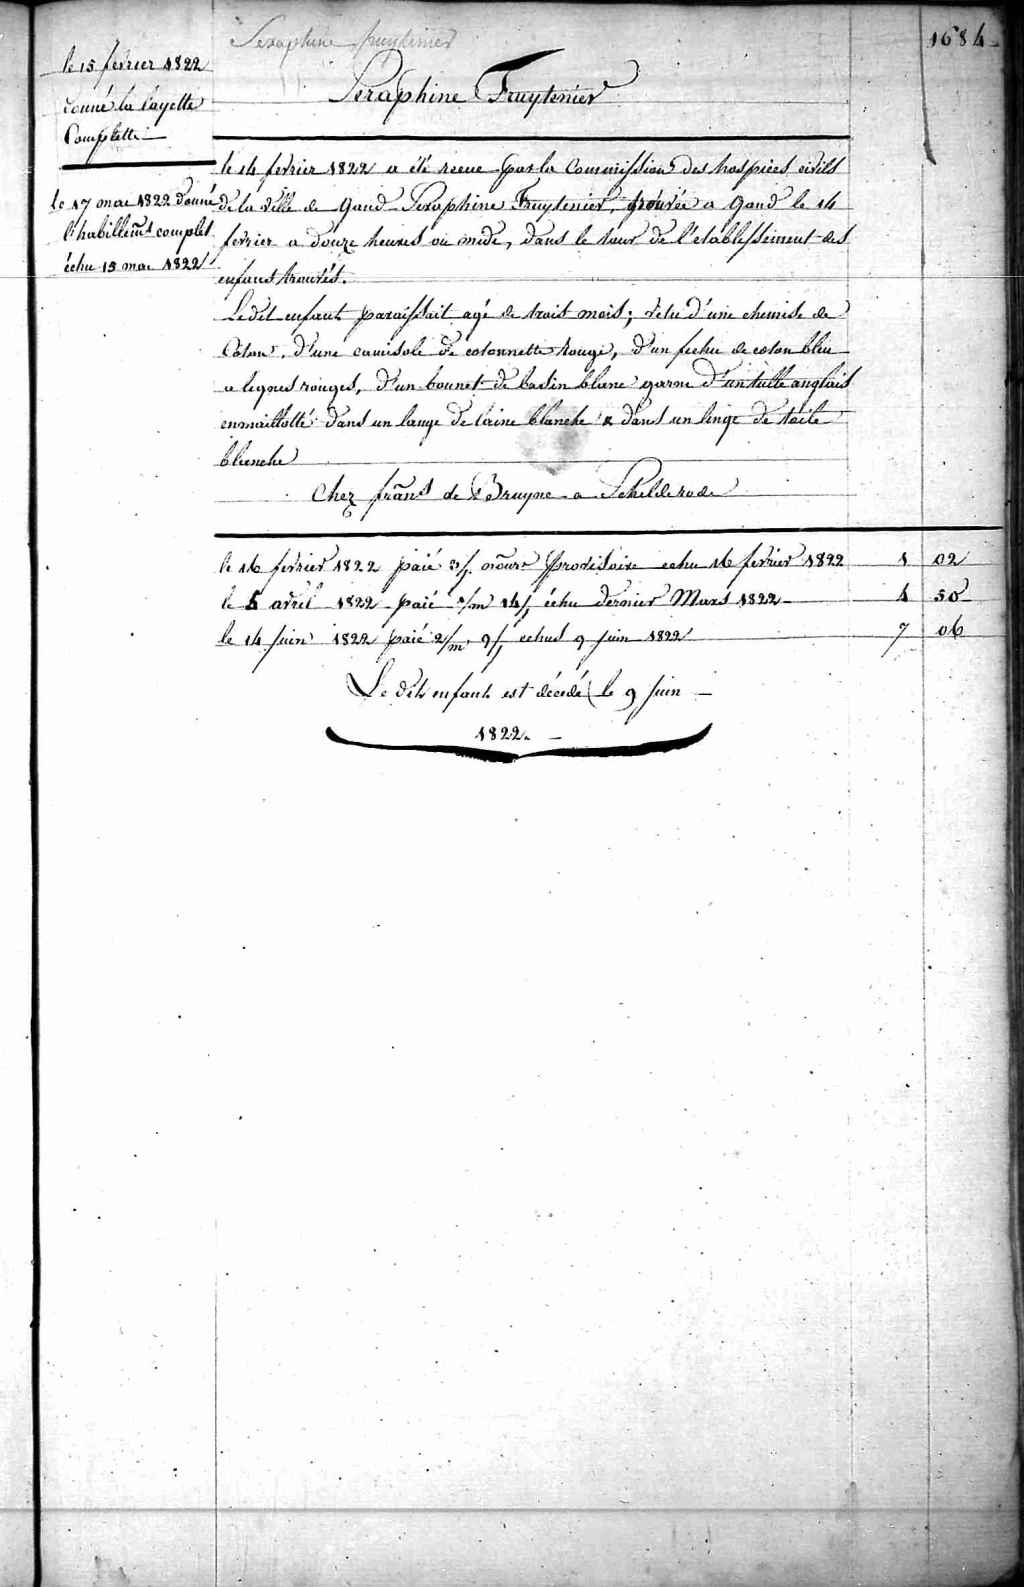 1684
Seraphine fruytenier
Seraphine Fruytenier
le 15 fevrier 1822
donné la layette
Complette
le 17 mai 1822 donné
l'habillemt complet
échu 15 mai 1822
le 14 fevrier 1822 a été recue par la Commission des hospices civils
de la ville de Gand Seraphine Fruytenier, trouvée a Gand le 14
fevrier a douze heures ou midi, dans le tour de l'etablissement des
enfans trouvés.
Ledit enfant paraissait agé de trois mois; vetu d'une chemise de
Coton, d'une camisole de cotonnette rouge, d'un fichu de coton bleu
a lignes rouges, d'un bonnet de basin blanc garni d'un tulle anglais
enmaillotté dans un lange de laine blanche & dans un linge de toile
blanche
Chez frans de Bruyne a Schelderode
le 16 fevrier 1822 paié 3/j. provisoire echu 16 fevrier 1822 1 02
le 5 avril 1822 paié 1/m 14/j échu dernier Mars 1822 4 50
le 14 Juin 1822 paié 2/m. 9/j echus 9 juin 1822 7 06
Le dit enfant est décédé le 9 Juin
1822.